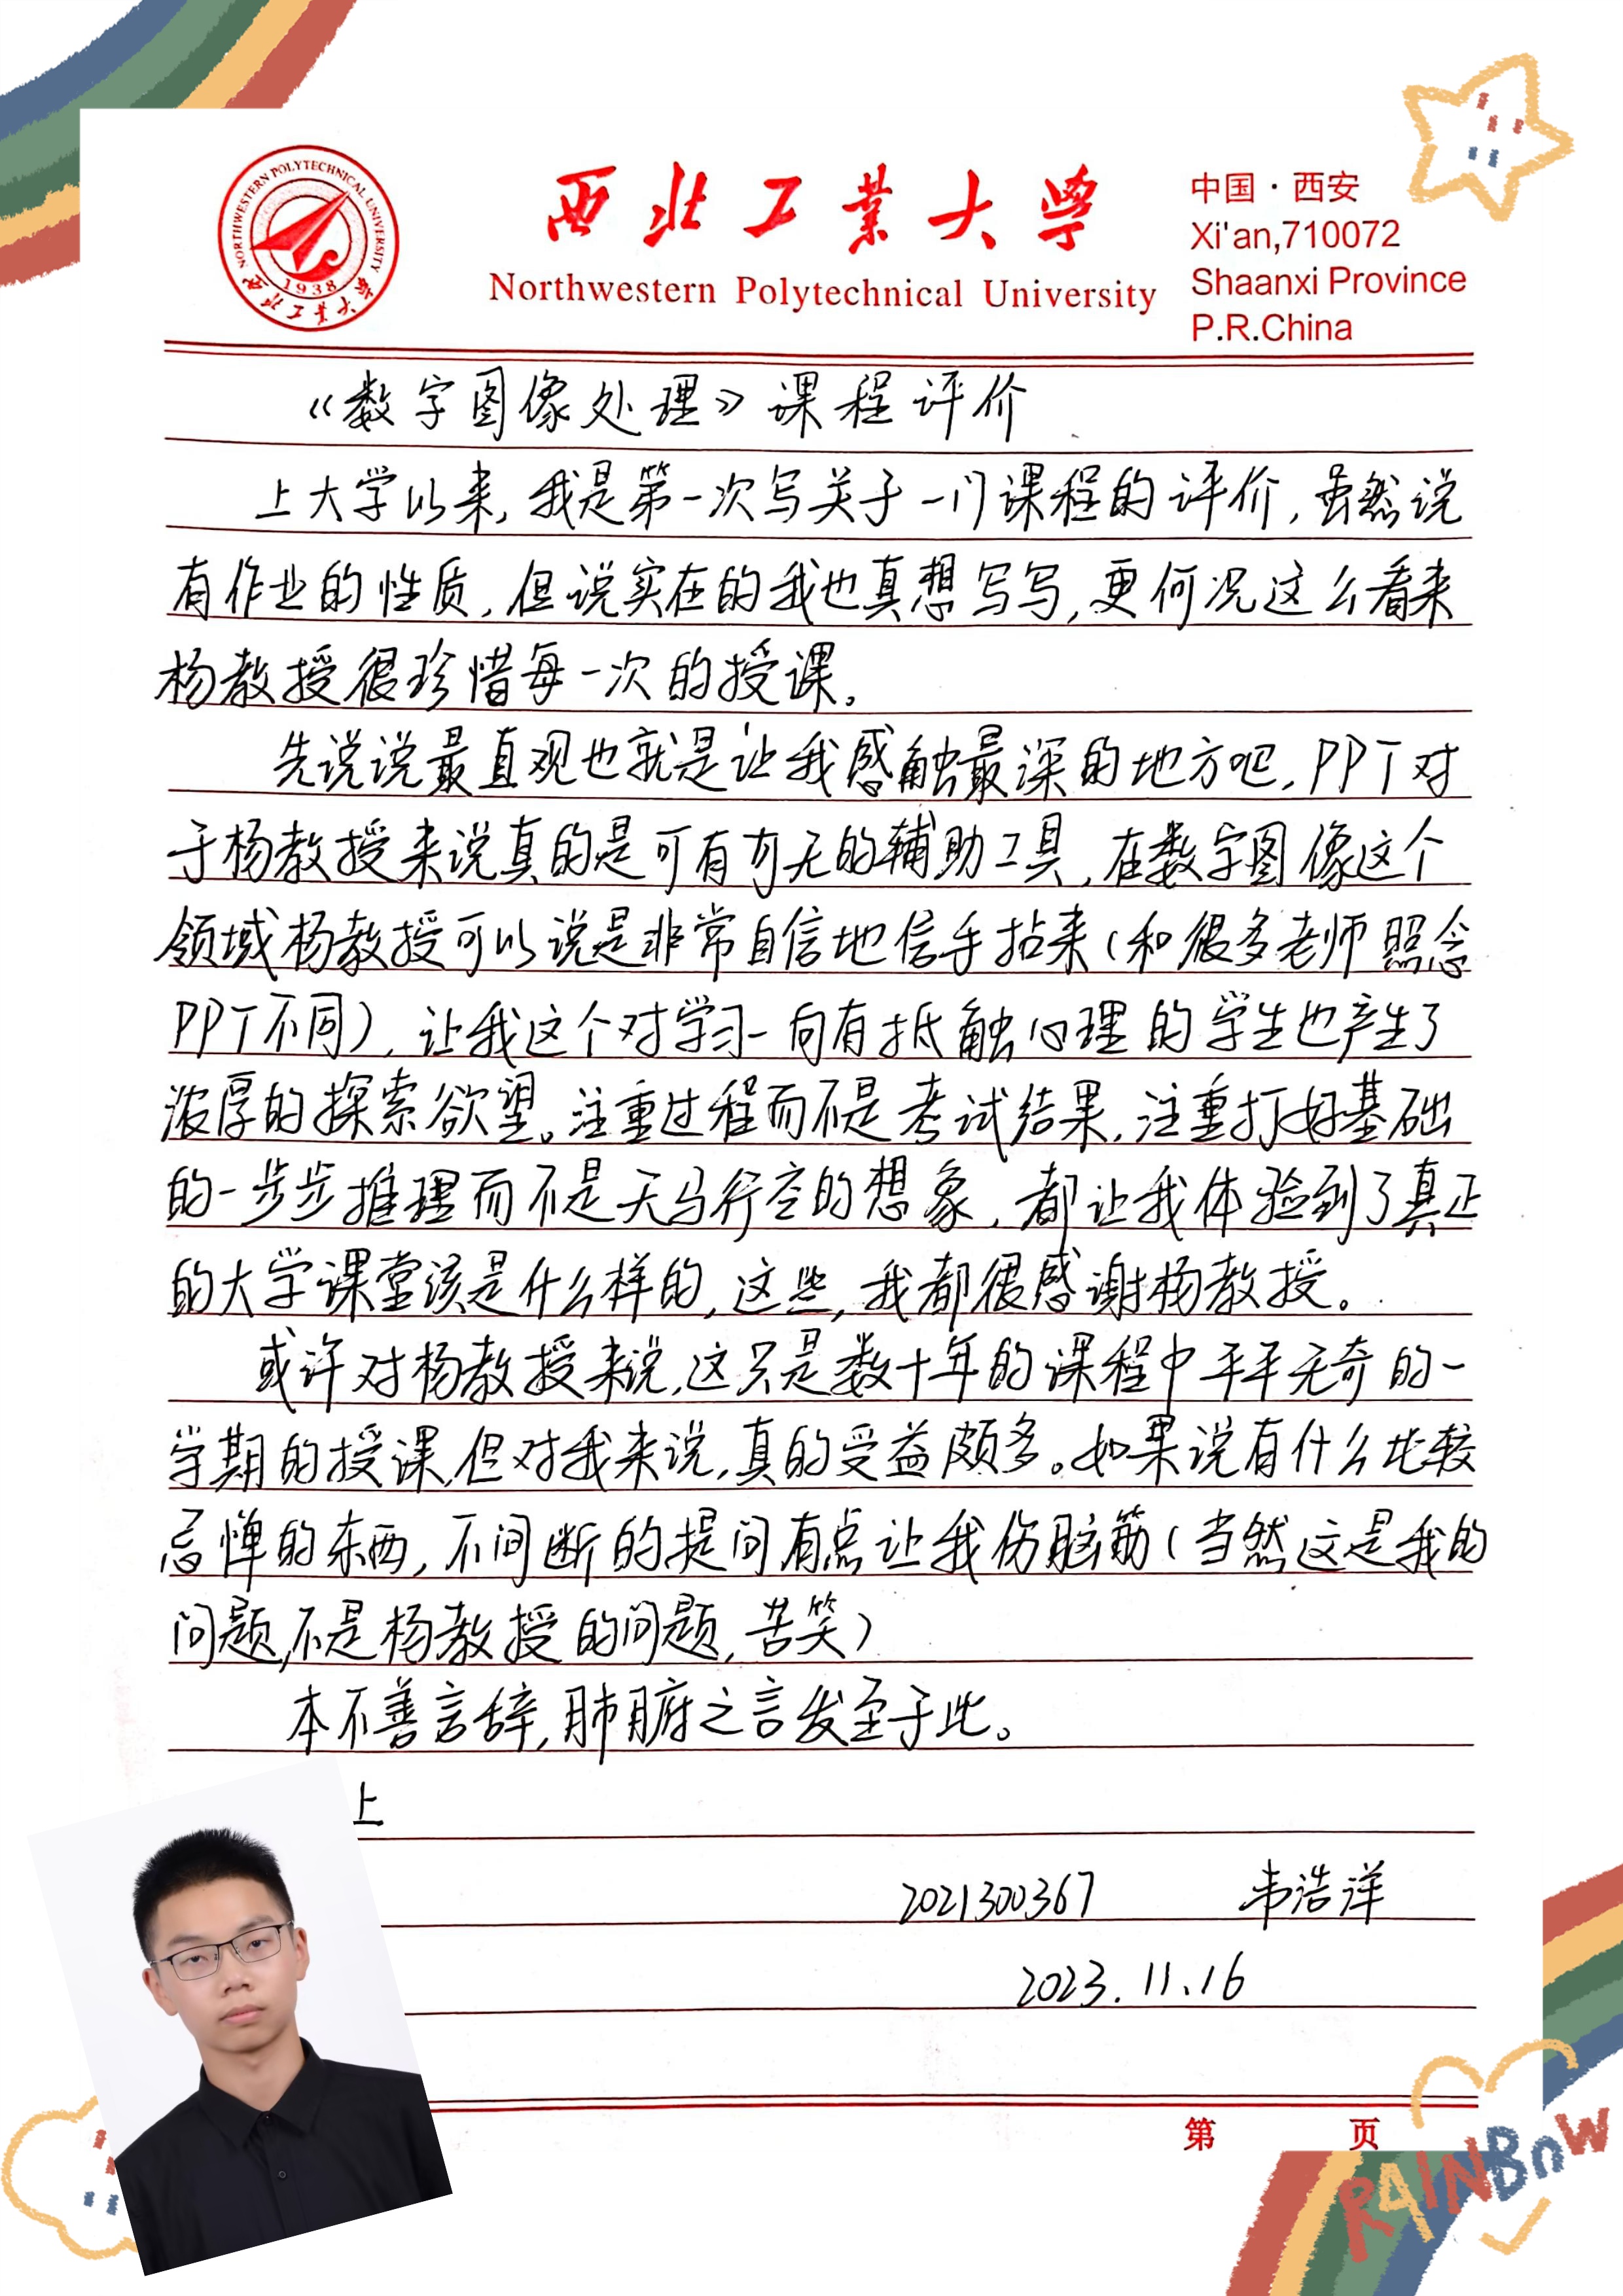 西北工業大學
Northwestern Polytechnical University
中国·西安
Xi'an,710072
Shaanxi Province
P.R.China
NORTHWESTERN POLYTECHNICAL UNIVERSITY
1938
西北工業大學
《数字图像处理》课程评价
上大学以来,我是第一次写关于一门课程的评价,虽然说
有作业的性质,但说实在的我也真想写写,更何况这么看来
杨教授很珍惜每一次的授课。
先说说最直观也就是让我感触最深的地方吧,PPT对
于杨教授来说真的是可有可无的辅助工具,在数字图像这个
领域杨教授可以说是非常自信地信手拈来(和很多老师照念
PPT不同),让我这个对学习一向有抵触心理的学生也产生了
浓厚的探索欲望。注重过程而不是考试结果,注重打好基础
的一步步推理而不是天马行空的想象,都让我体验到了真正
的大学课堂该是什么样的,这些,我都很感谢杨教授。
或许对杨教授来说,这只是数十年的课程中平平无奇的一
学期的授课,但对我来说,真的受益颇多。如果说有什么比较
忌惮的东西,不间断的提问有点让我伤脑筋(当然这是我的
问题,不是杨教授的问题,苦笑)
本不善言辞,肺腑之言发至于此。
上
2021300367 韦浩洋
2023.11.16
第 页
RAINBOW